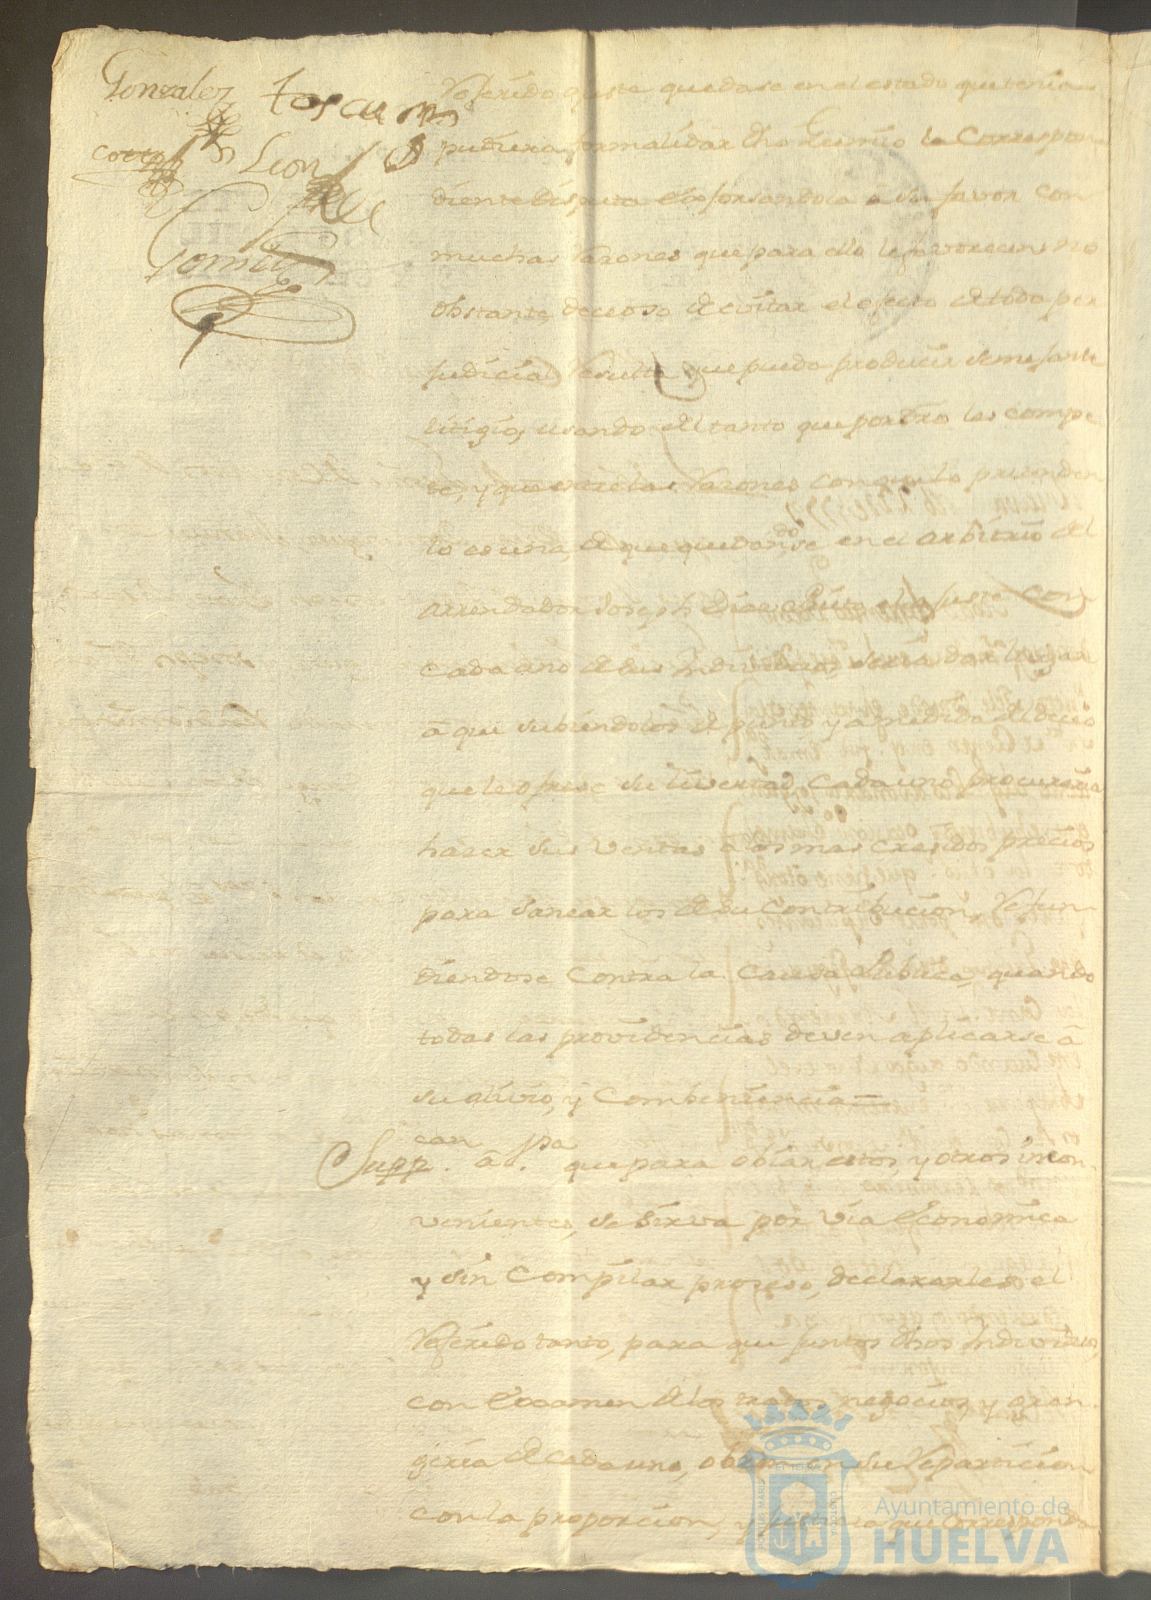 Gonzalez toscano
cotto Leon
Gomez
Referido ajuste quedase en el estado que tenia
pudiera formalidar dho Gremio la Correspon
diente disputa esforsandola a su favor con
muchas razones que para ello le favorecen no
obstante, deceoso de evitar el efecto de todo per
judicial resulta que puede producir semejante
litigio, usando del tanto que por dro les compe
te, y que entre las razones con que lo pretenden
lo es una, de que quedandose en el arbitrio del
arrendador Joseph Dias el ajuste con
cada uno de sus individuos seria dar lugar
a que subiendolos de punto y a medida del deceo
que le ofrese su livertad, cada uno procuraria
haser sus ventas a los mas cresidos precios
para sanear los de su Contribucion, refun
diendose contra la causa Publica, quando
todas las providencias deven aplicarse a
su alivio, y Combeniencia
Suppcan a que para obiar estos, y otros incon
venientes, se sirva por via Economica
y sin Compilar proseso, declararles el
Referido tanto, para que juntos dhos Individuos,
con Examen de los tratos, negocios, y gran
geria de cada uno, obren en su Reparticion
con la proporcion, y justicia que corresponda
Ayuntamiento de
HUELVA